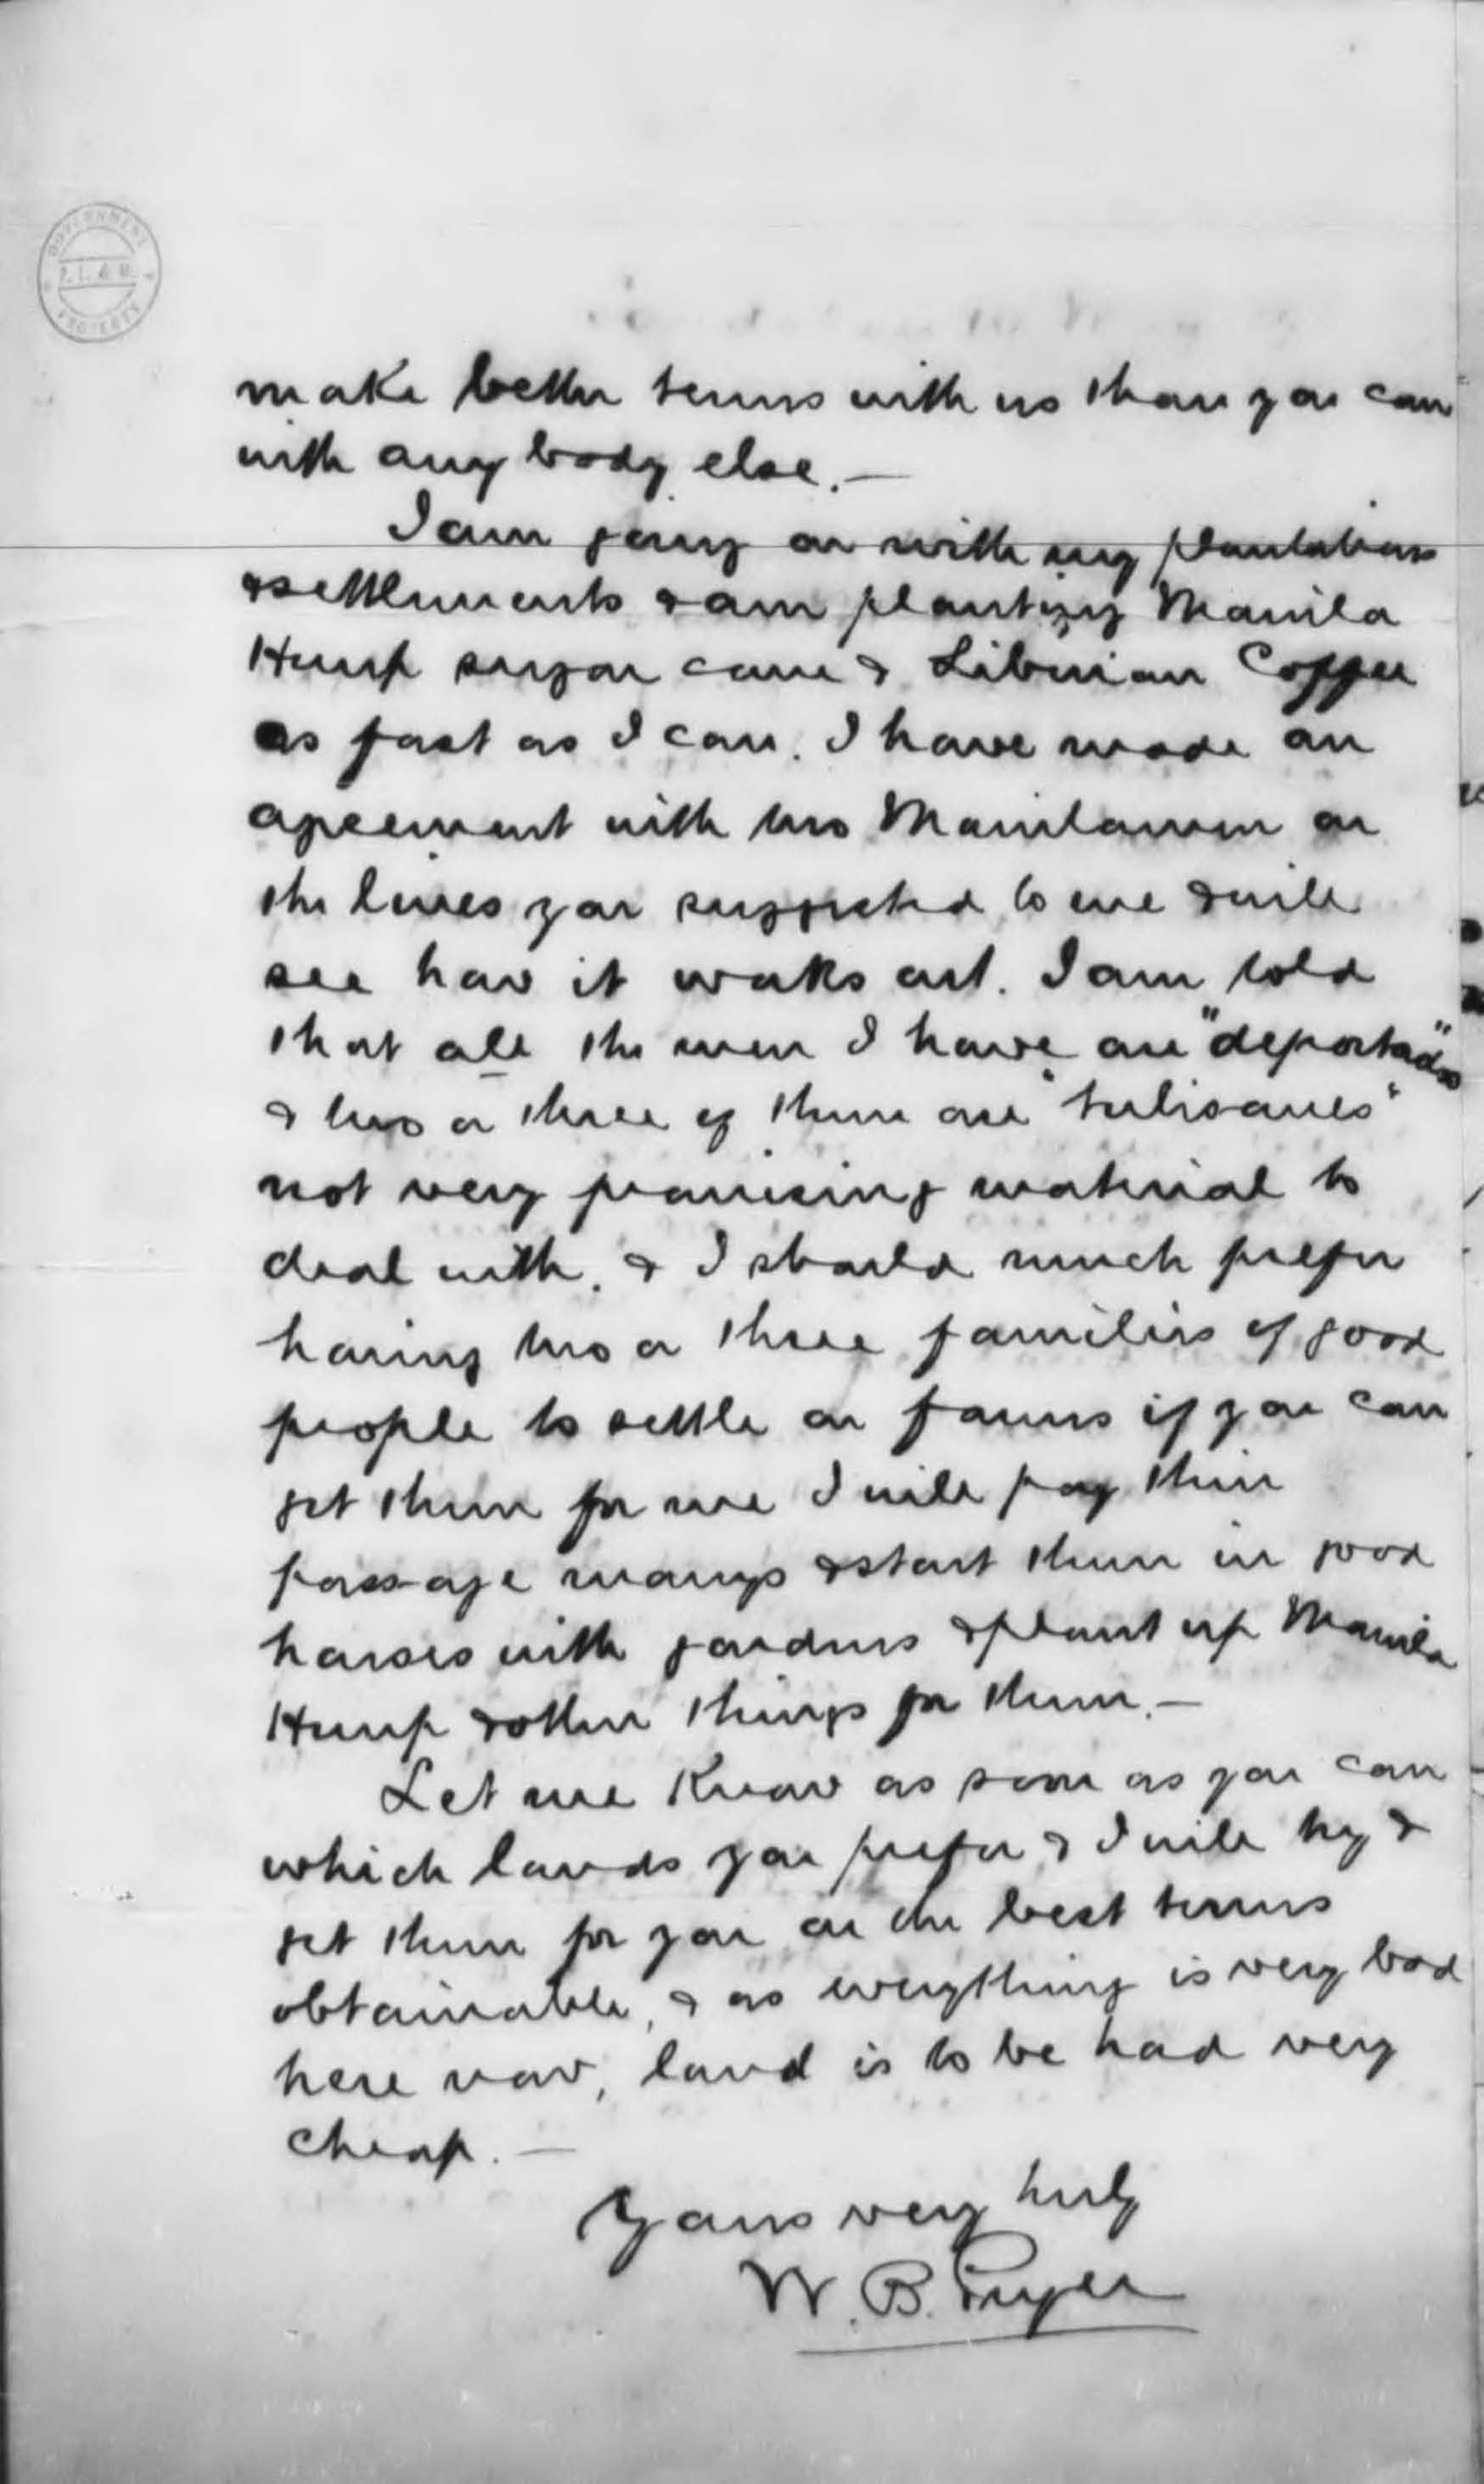 GOVERNMENT
PROPERTY
make better terms with us than you can
with any body else.—
I am going on with my plantations
& settlements & am planting Manila
Hemp sugar cane & Liberian Coffee
as fast as I can. I have made an
agreement with two Manilamen on
the lines you suggested to me & will
see how it works out. I am told
that all the men I have are "deportados"
& two or three of them are "tulisanes"
not very promising material to
deal with. & I should much prefer
having two or three families of good
people to settle on farms if you can
get them for me I will pay their
passage & start them in good
houses with gardens & plant up Manila
Hemp & other things for them.—
Let me Know as soon as you can
which lands you prefer & I will try &
get them for you on the best terms
obtainable, & as everything is very bad
here now, land is to be had very
cheap.—
Yours very truly
W. B. Pryer